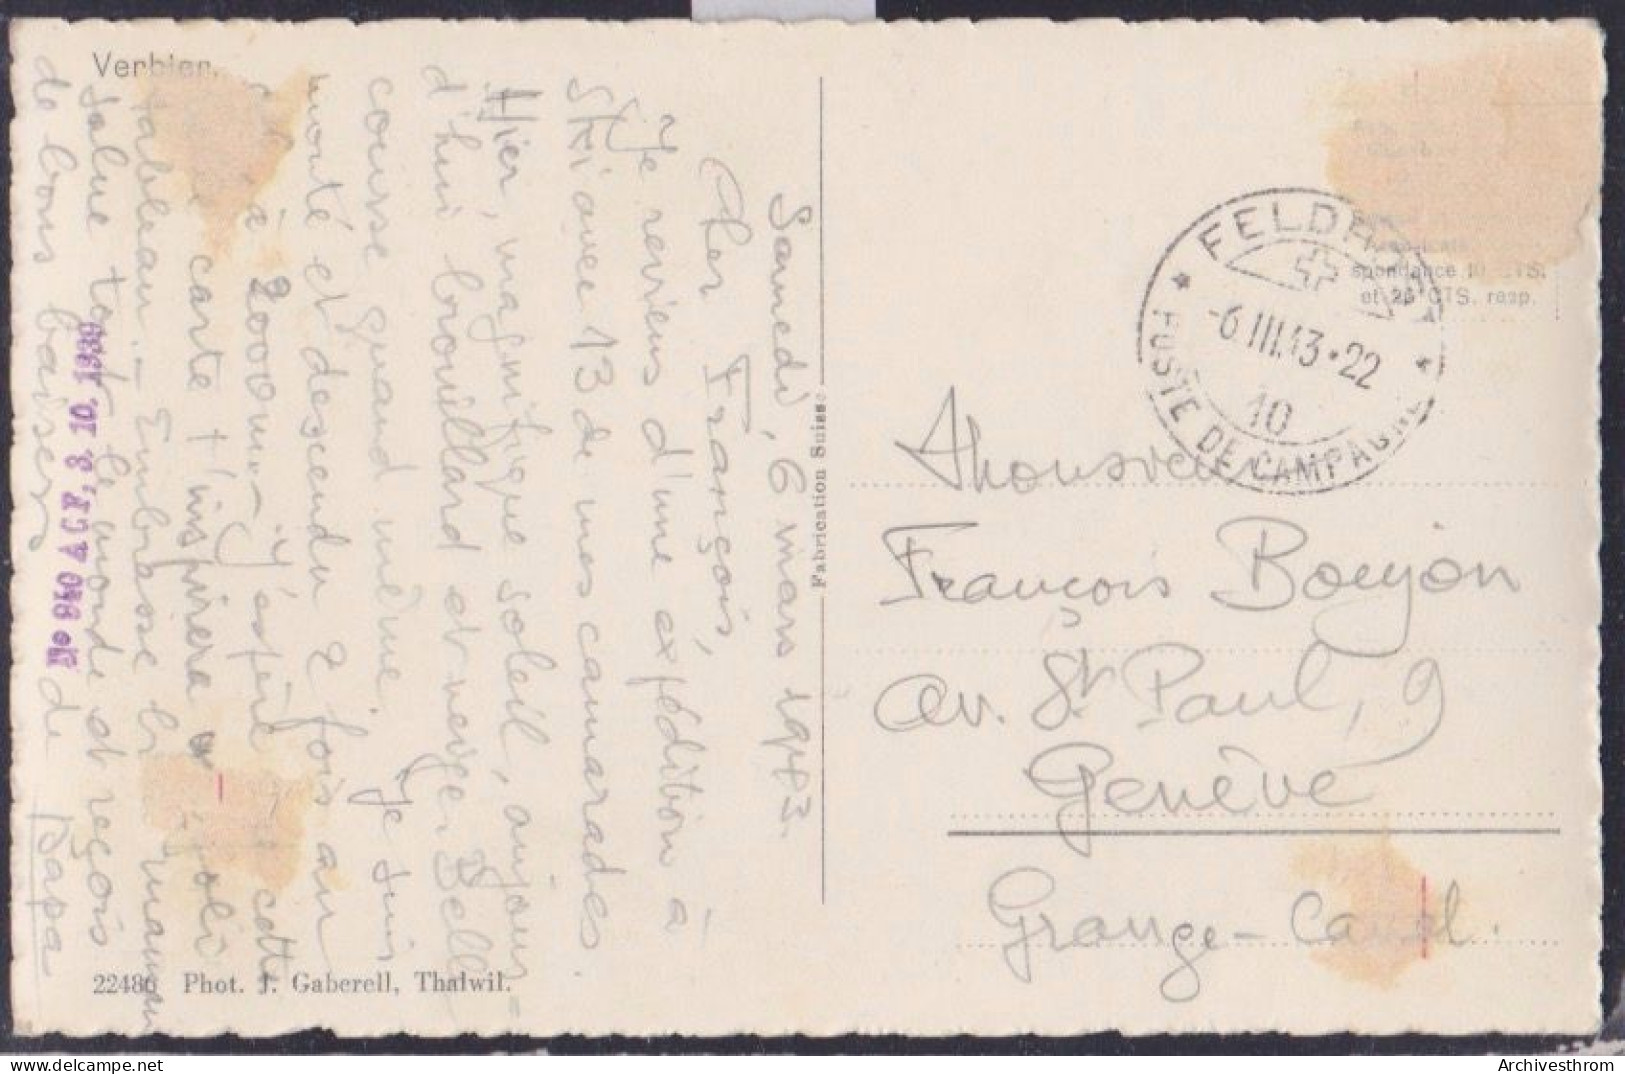 Verbier.
Samedi, 6 mars 1943.
Cher François,
Je reviens d'une expédition à
Ski avec 13 de mes camarades.
Hier, magnifique soleil, aujour=
d'hui brouillard et neige. Belle
course quand même. Je suis
monté et descendu 2 fois au
à 2000 m.- J'espère cette
carte t'inspirera un joli
tableau.- Embrasse la maman
salue tout le monde et reçois
de bons baisers de Papa
No 940 ACF, 3. 10. 1939
22486 Phot. J. Gaberell, Thalwil.
Fabrication Suisse
FELDPOST
-6.III.43·22
10
POSTE DE CAMPAGNE
spondance 10 CTS.
et 25 CTS. resp.
Monsieur
François Boujon
av. St Paul, 9
Genève
Grange-Canal.
Archivesthrom